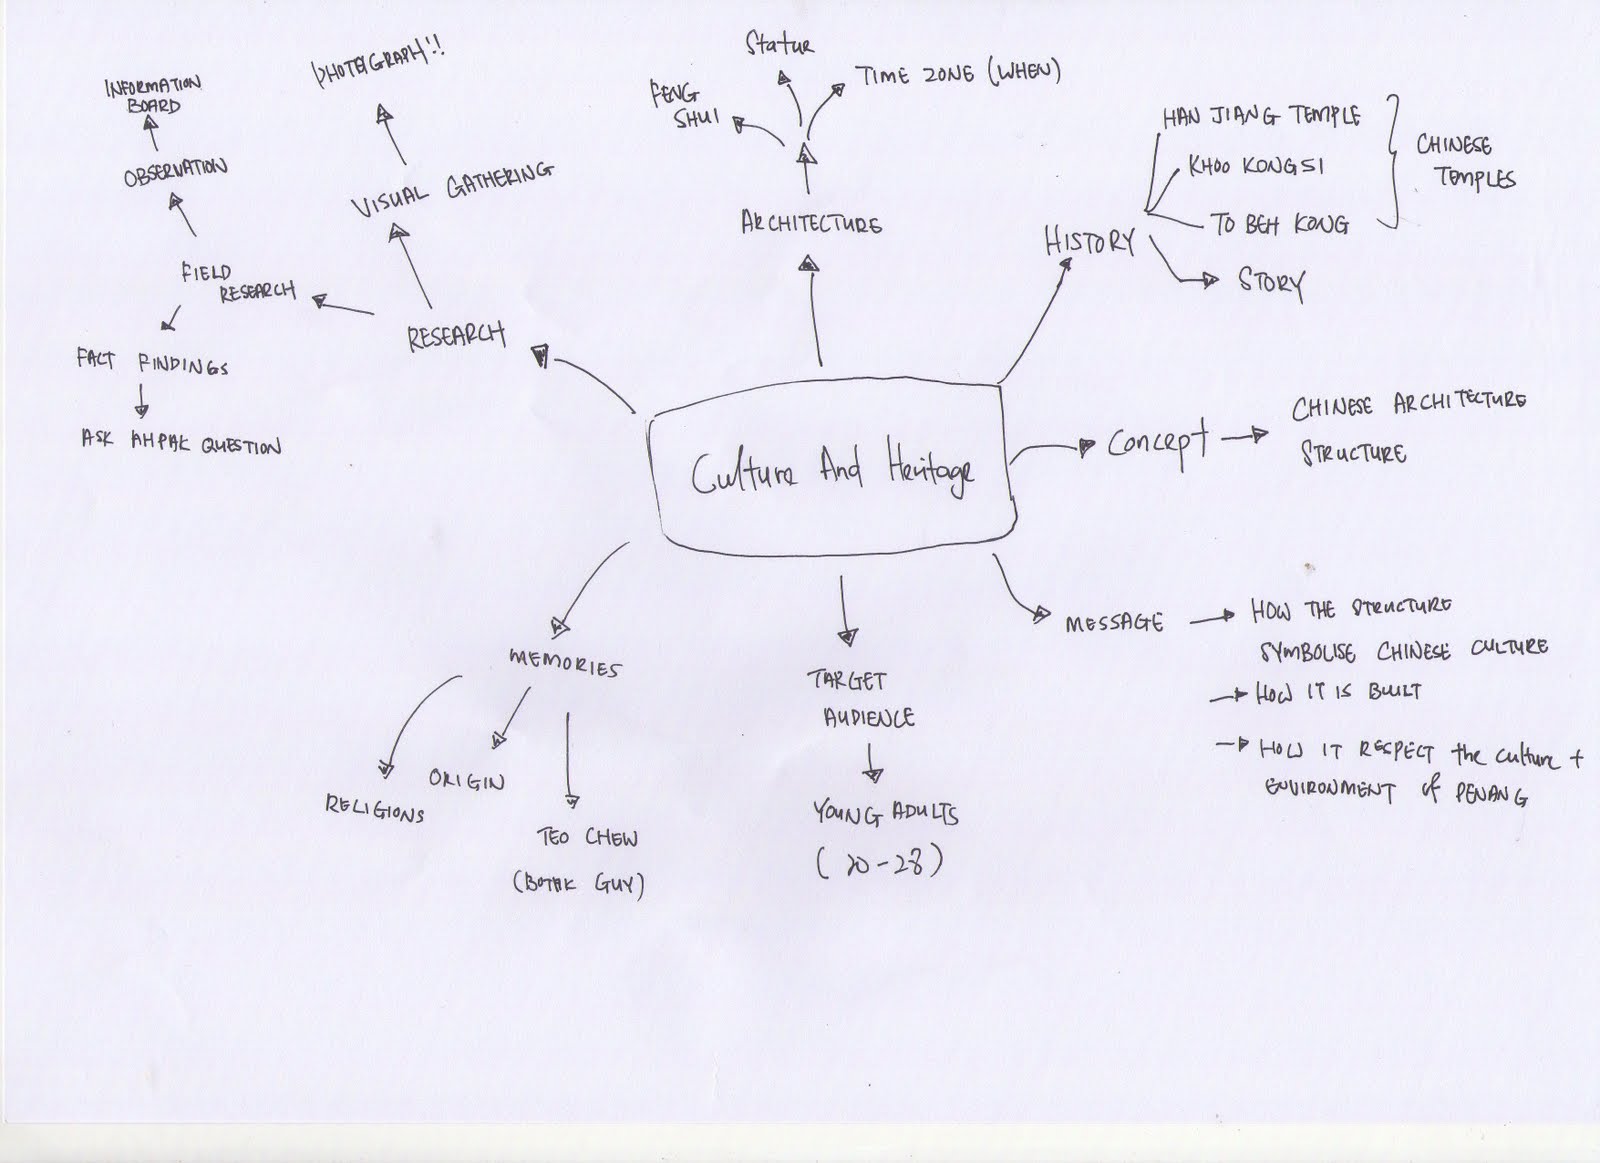 Statue
PHOTOGRAPH!!
TIME ZONE (WHEN)
INFORMATION
BOARD
FENG
SHUI
HAN JIANG TEMPLE
CHINESE
TEMPLES
KHOO KONGSI
OBSERVATION
VISUAL GATHERING
ARCHITECTURE
TO BEH KONG
HISTORY
STORY
FIELD
RESEARCH
RESEARCH
FACT FINDINGS
ASK AHPAK QUESTION
Culture And Heritage
Concept
CHINESE ARCHITECTURE
STRUCTURE
MESSAGE
HOW THE STRUCTURE
SYMBOLISE CHINESE CULTURE
HOW IT IS BUILT
HOW IT RESPECT the culture +
ENVIRONMENT of PENANG
MEMORIES
RELIGIONS
ORIGIN
TEO CHEW
(BOTAK GUY)
TARGET
AUDIENCE
YOUNG ADULTS
(20-28)